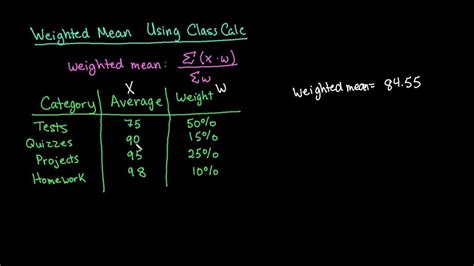 Weighted Mean Using Class Calc
weighted mean: Σ(x·w)
Σw
X
W
Category Average Weight
Tests 75 50%
Quizzes 90 15%
Projects 95 25%
Homework 98 10%
Weighted mean= 84.55